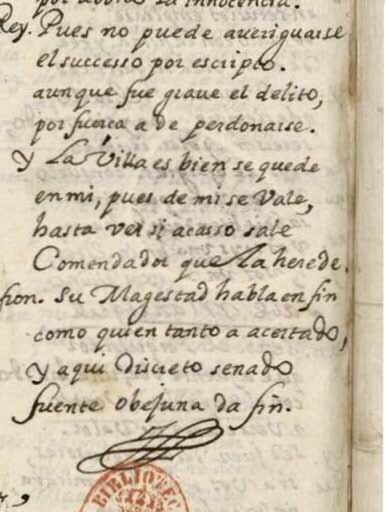 por abono su innocencia.
Rey. Pues no puede averiguarse
el successo por escripto.
aunque fue graue el delito,
por fuerca a de perdonarse.
y La Villa es bien se quede
en mi, pues de mi se Vale,
hasta ver si acasso sale
Comendador que La herede.
fron. Su Magestad habla en fin
como quien tanto a acertado,
y aqui Discreto senado
fuente obejuna da fin.
BIBLIOTEC